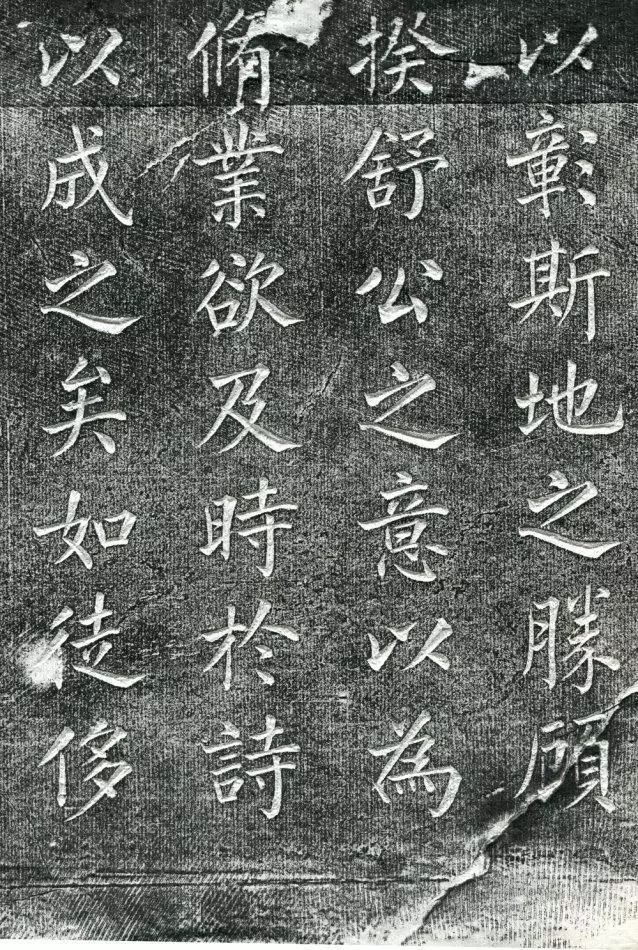 以彰斯地之勝顧
揆舒公之意以為
脩業欲及時於詩
以成之矣如徒侈